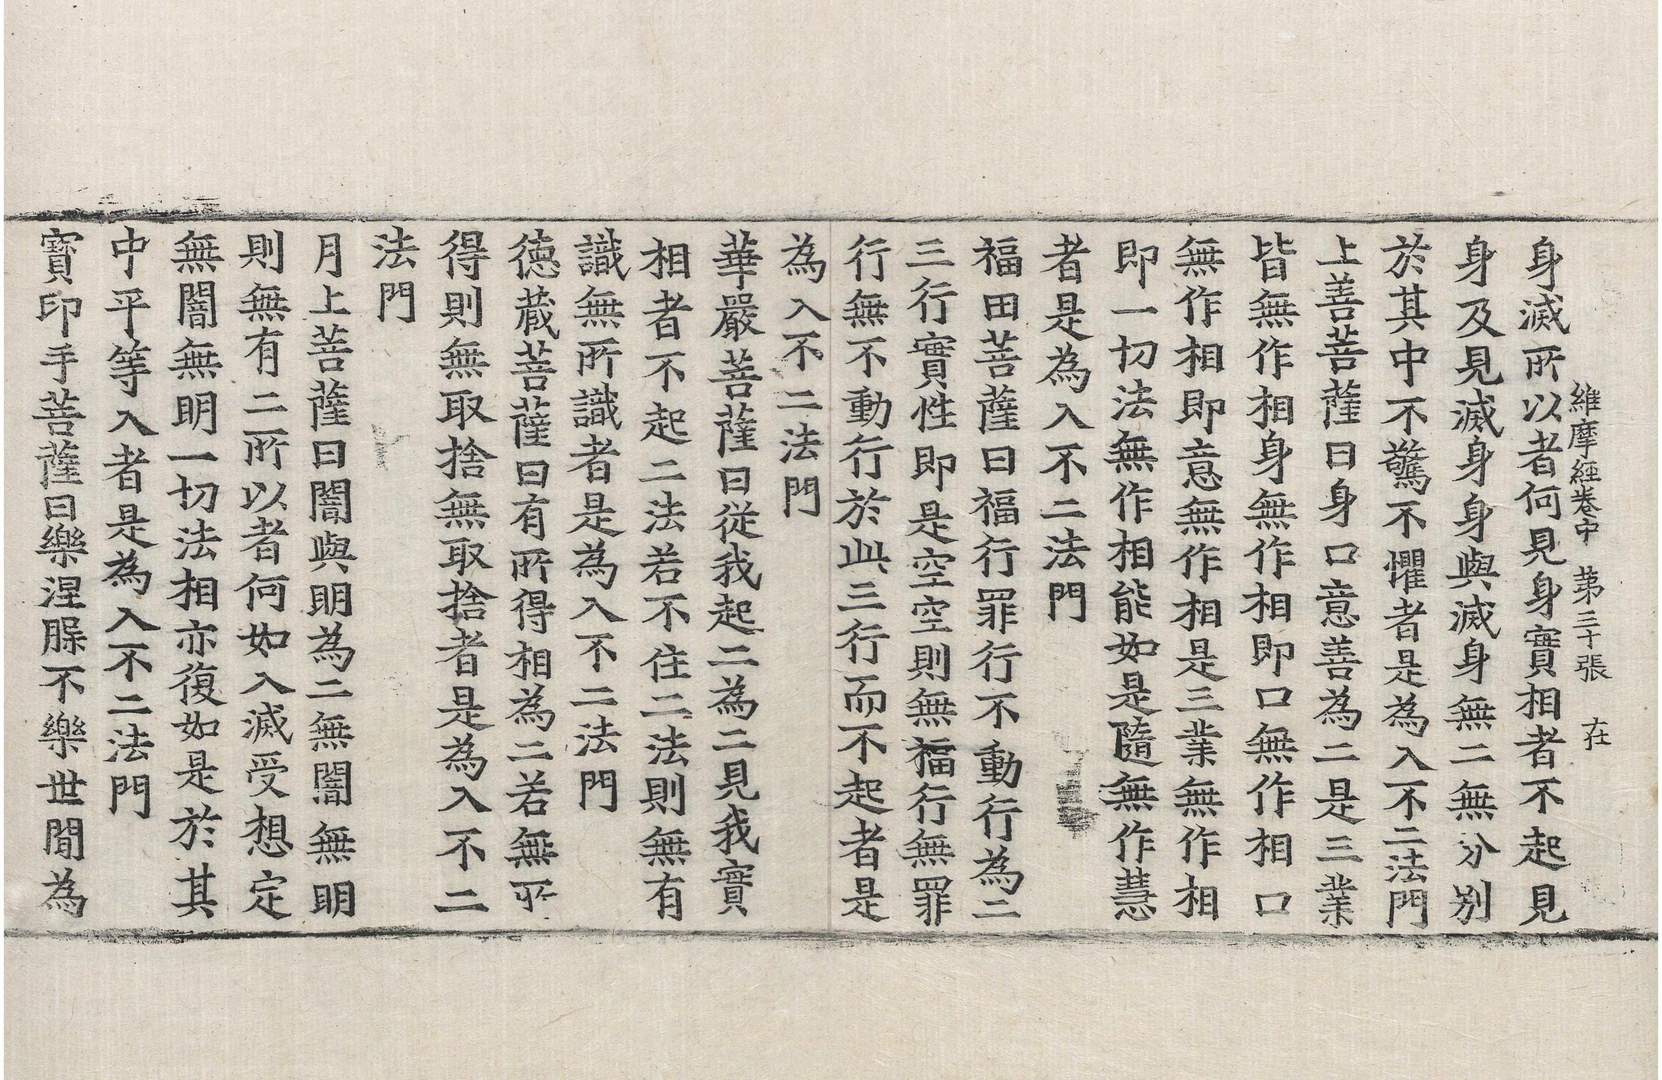 維摩經卷中 第三十張 在
身滅所以者何見身實相者不起見
身及見滅身身與滅身無二無分別
於其中不驚不懼者是為入不二法門
上善菩薩曰身口意善為二是三業
皆無作相身無作相即口無作相口
無作相即意無作相是三業無作相
即一切法無作相能如是隨無作慧
者是為入不二法門
福田菩薩曰福行罪行不動行為二
三行實性即是空空則無福行無罪
行無不動行於此三行而不起者是
為入不二法門
華嚴菩薩曰從我起二為二見我實
相者不起二法若不住二法則無有
識無所識者是為入不二法門
德藏菩薩曰有所得相為二若無所
得則無取捨無取捨者是為入不二
法門
月上菩薩曰闇與明為二無闇無明
則無有二所以者何如入滅受想定
無闇無明一切法相亦復如是於其
中平等入者是為入不二法門
寶印手菩薩曰樂涅槃不樂世間為